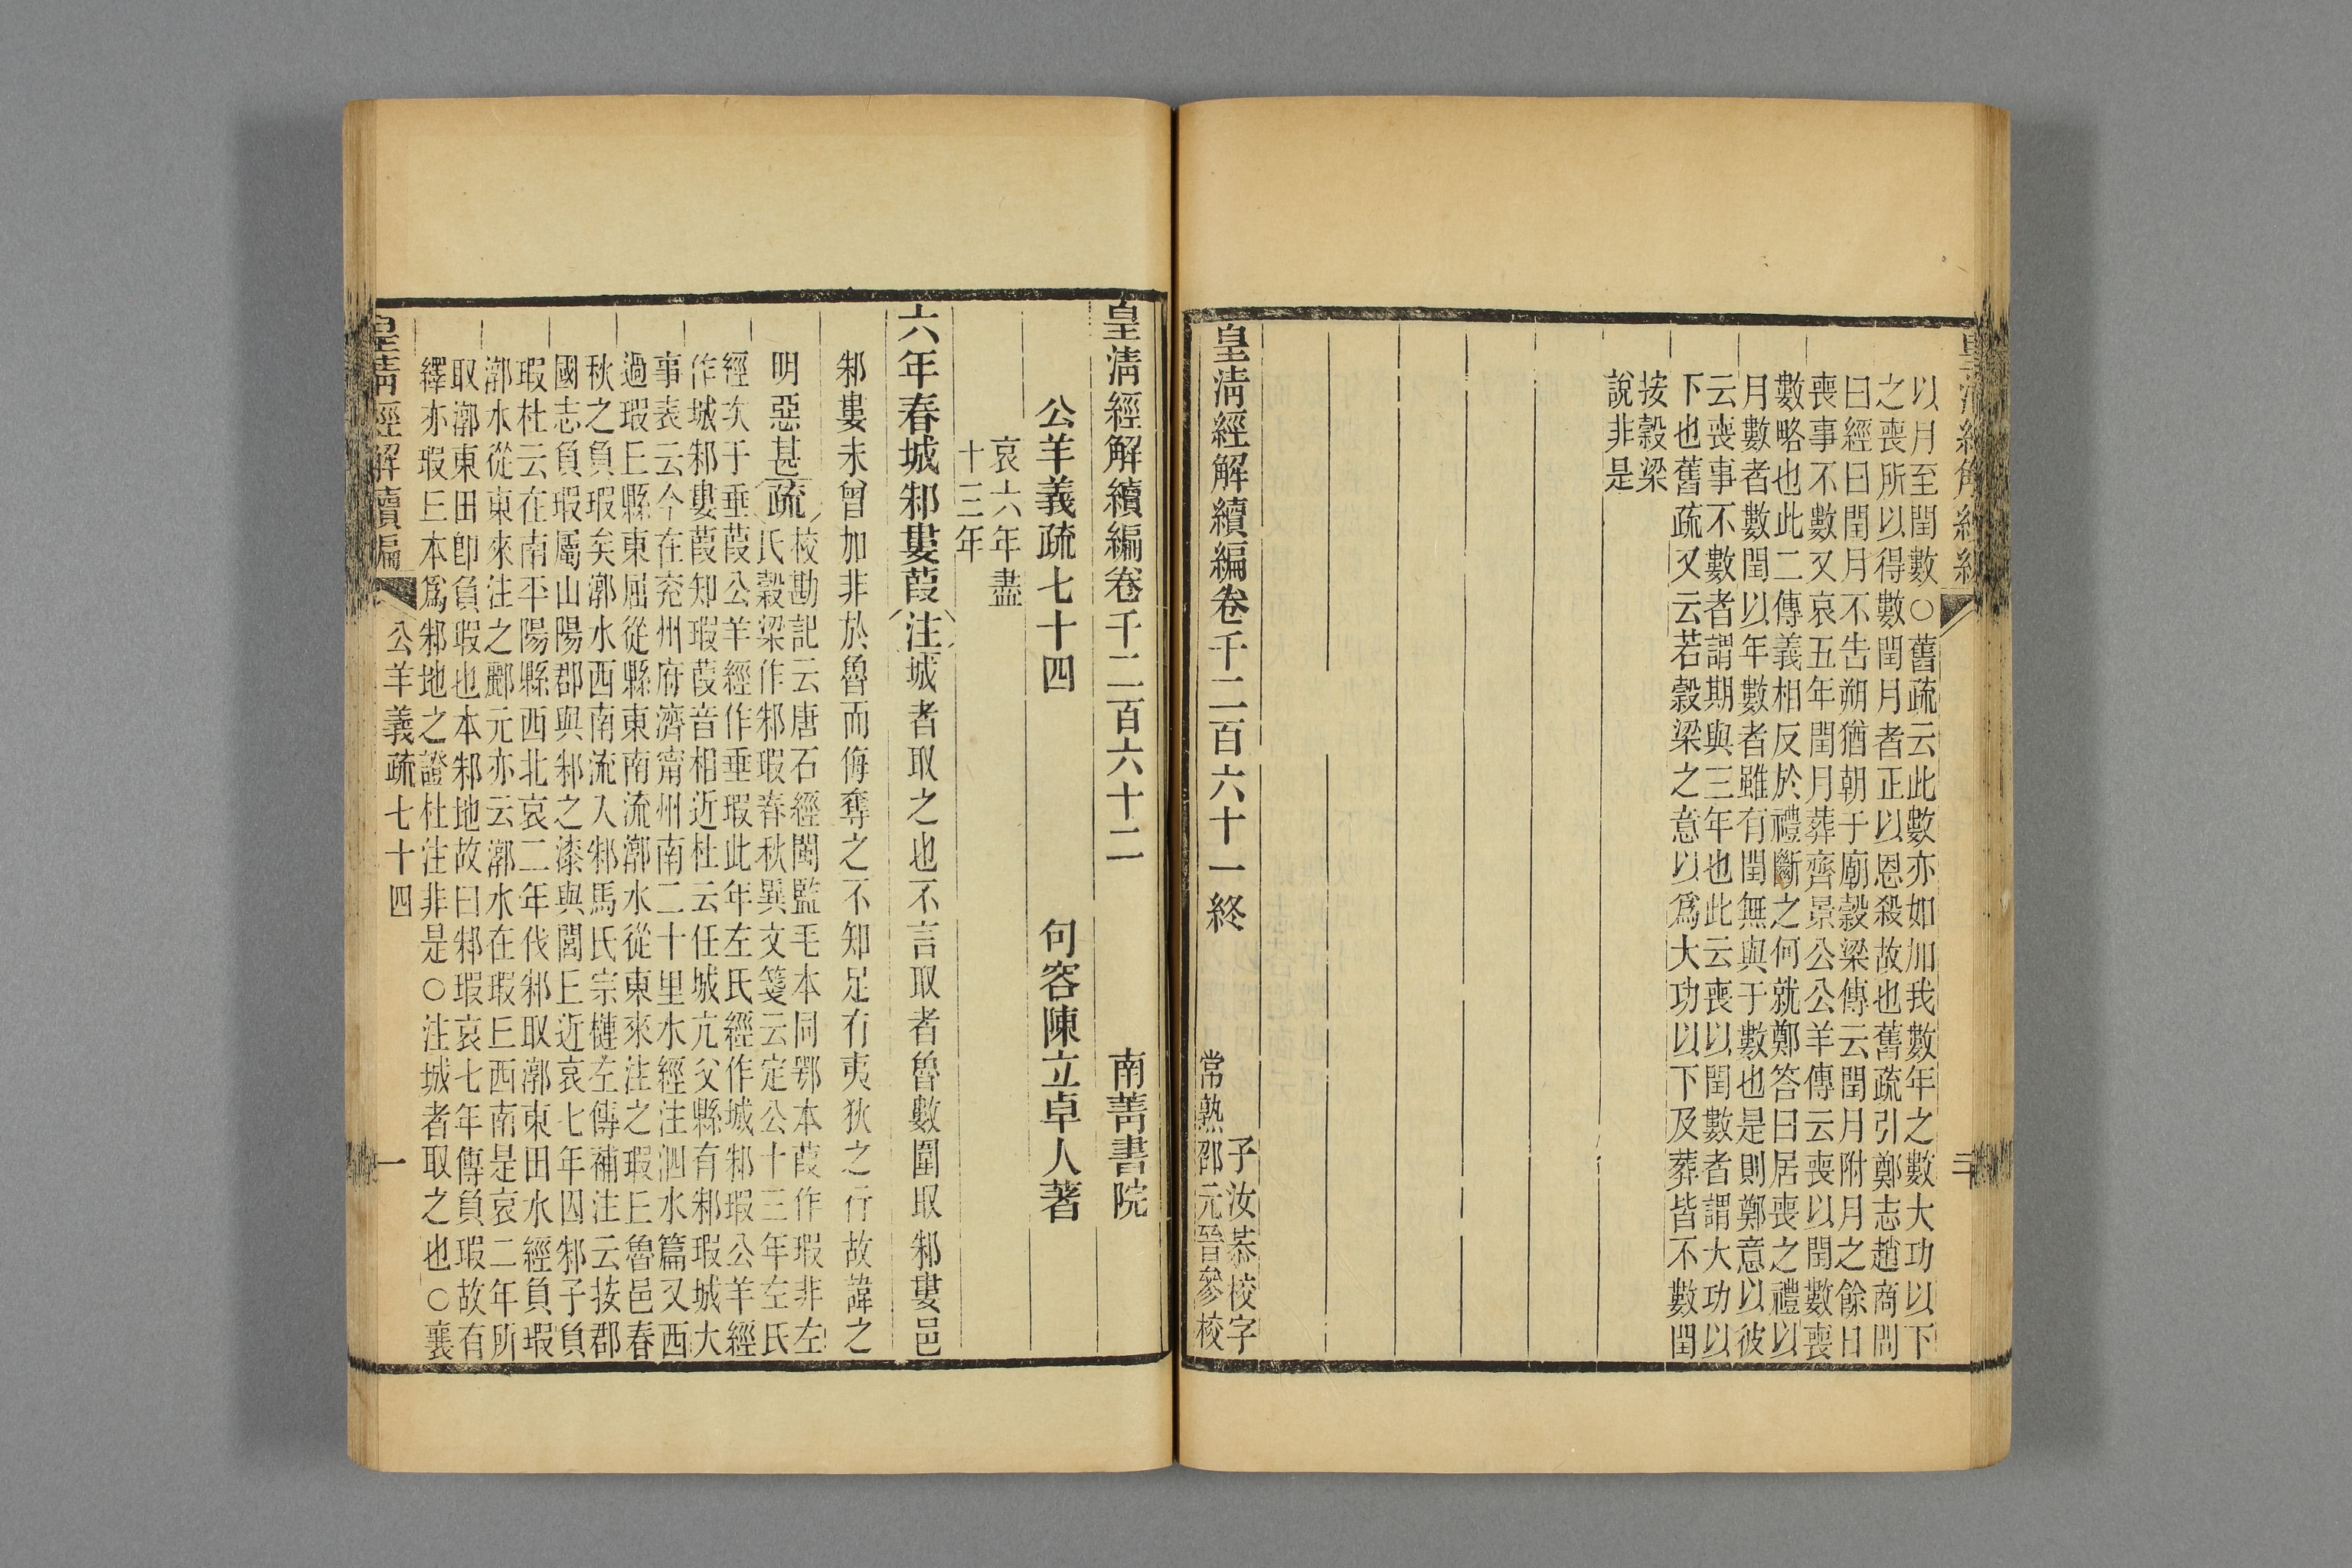 以月至閏數○舊疏云此數亦如加我數年之數大功以下
之喪所以得數閏月者正以恩殺故也舊疏引鄭志趙商問
曰經曰閏月不告朔猶朝于廟穀梁傳云閏月附月之餘日
喪事不數又哀五年閏月葬齊景公公羊傳云喪以閏數喪
數略也此二傳義相反於禮斷之何就鄭荅曰居喪之禮以
月數者數閏以年數者雖有閏無與于數也是則鄭意以彼
云喪事不數者謂期與三年也此云喪以閏數者謂大功以
下也舊疏又云若穀梁之意以爲大功以下及葬皆不數閏
按穀梁
說非是
皇淸經解續編卷千二百六十一終
子汝恭校字
常熟邵元晉參校
皇淸經解續編卷千二百六十二
南菁書院
公羊義疏七十四
句容陳立卓人著
哀六年盡
十三年
六年春城邾婁葭注城者取之也不言取者魯數圍取邾婁邑
邾婁未曾加非於魯而侮奪之不知足有夷狄之行故諱之
明惡甚疏
校勘記云唐石經閩監毛本同鄂本葭作瑕非左
氏穀梁作邾瑕春秋異文箋云定公十三年左氏
經次于垂葭公羊經作垂瑕此年左氏經作城邾瑕公羊經
作城邾婁葭知瑕葭音相近杜云任城亢父縣有邾瑕城大
事表云今在兖州府濟甯州南二十里水經注泗水篇又西
過瑕㐀縣東屈從縣東南流漷水從東來注之瑕㐀魯邑春
秋之負瑕矣漷水西南流入邾馬氏宗槤左傳補注云按郡
國志負瑕屬山陽郡與邾之漆與閭㐀近哀七年囚邾子負
瑕杜云在南平陽縣西北哀二年伐邾取漷東田水經負瑕
漷水從東來注之酈元亦云漷水在瑕㐀西南是哀二年所
取漷東田卽負瑕也本邾地故曰邾瑕哀七年傳負瑕故有
繹亦瑕㐀本爲邾地之證杜注非是○注城者取之也○襄
皇淸經解續編
公羊義疏七十四
一